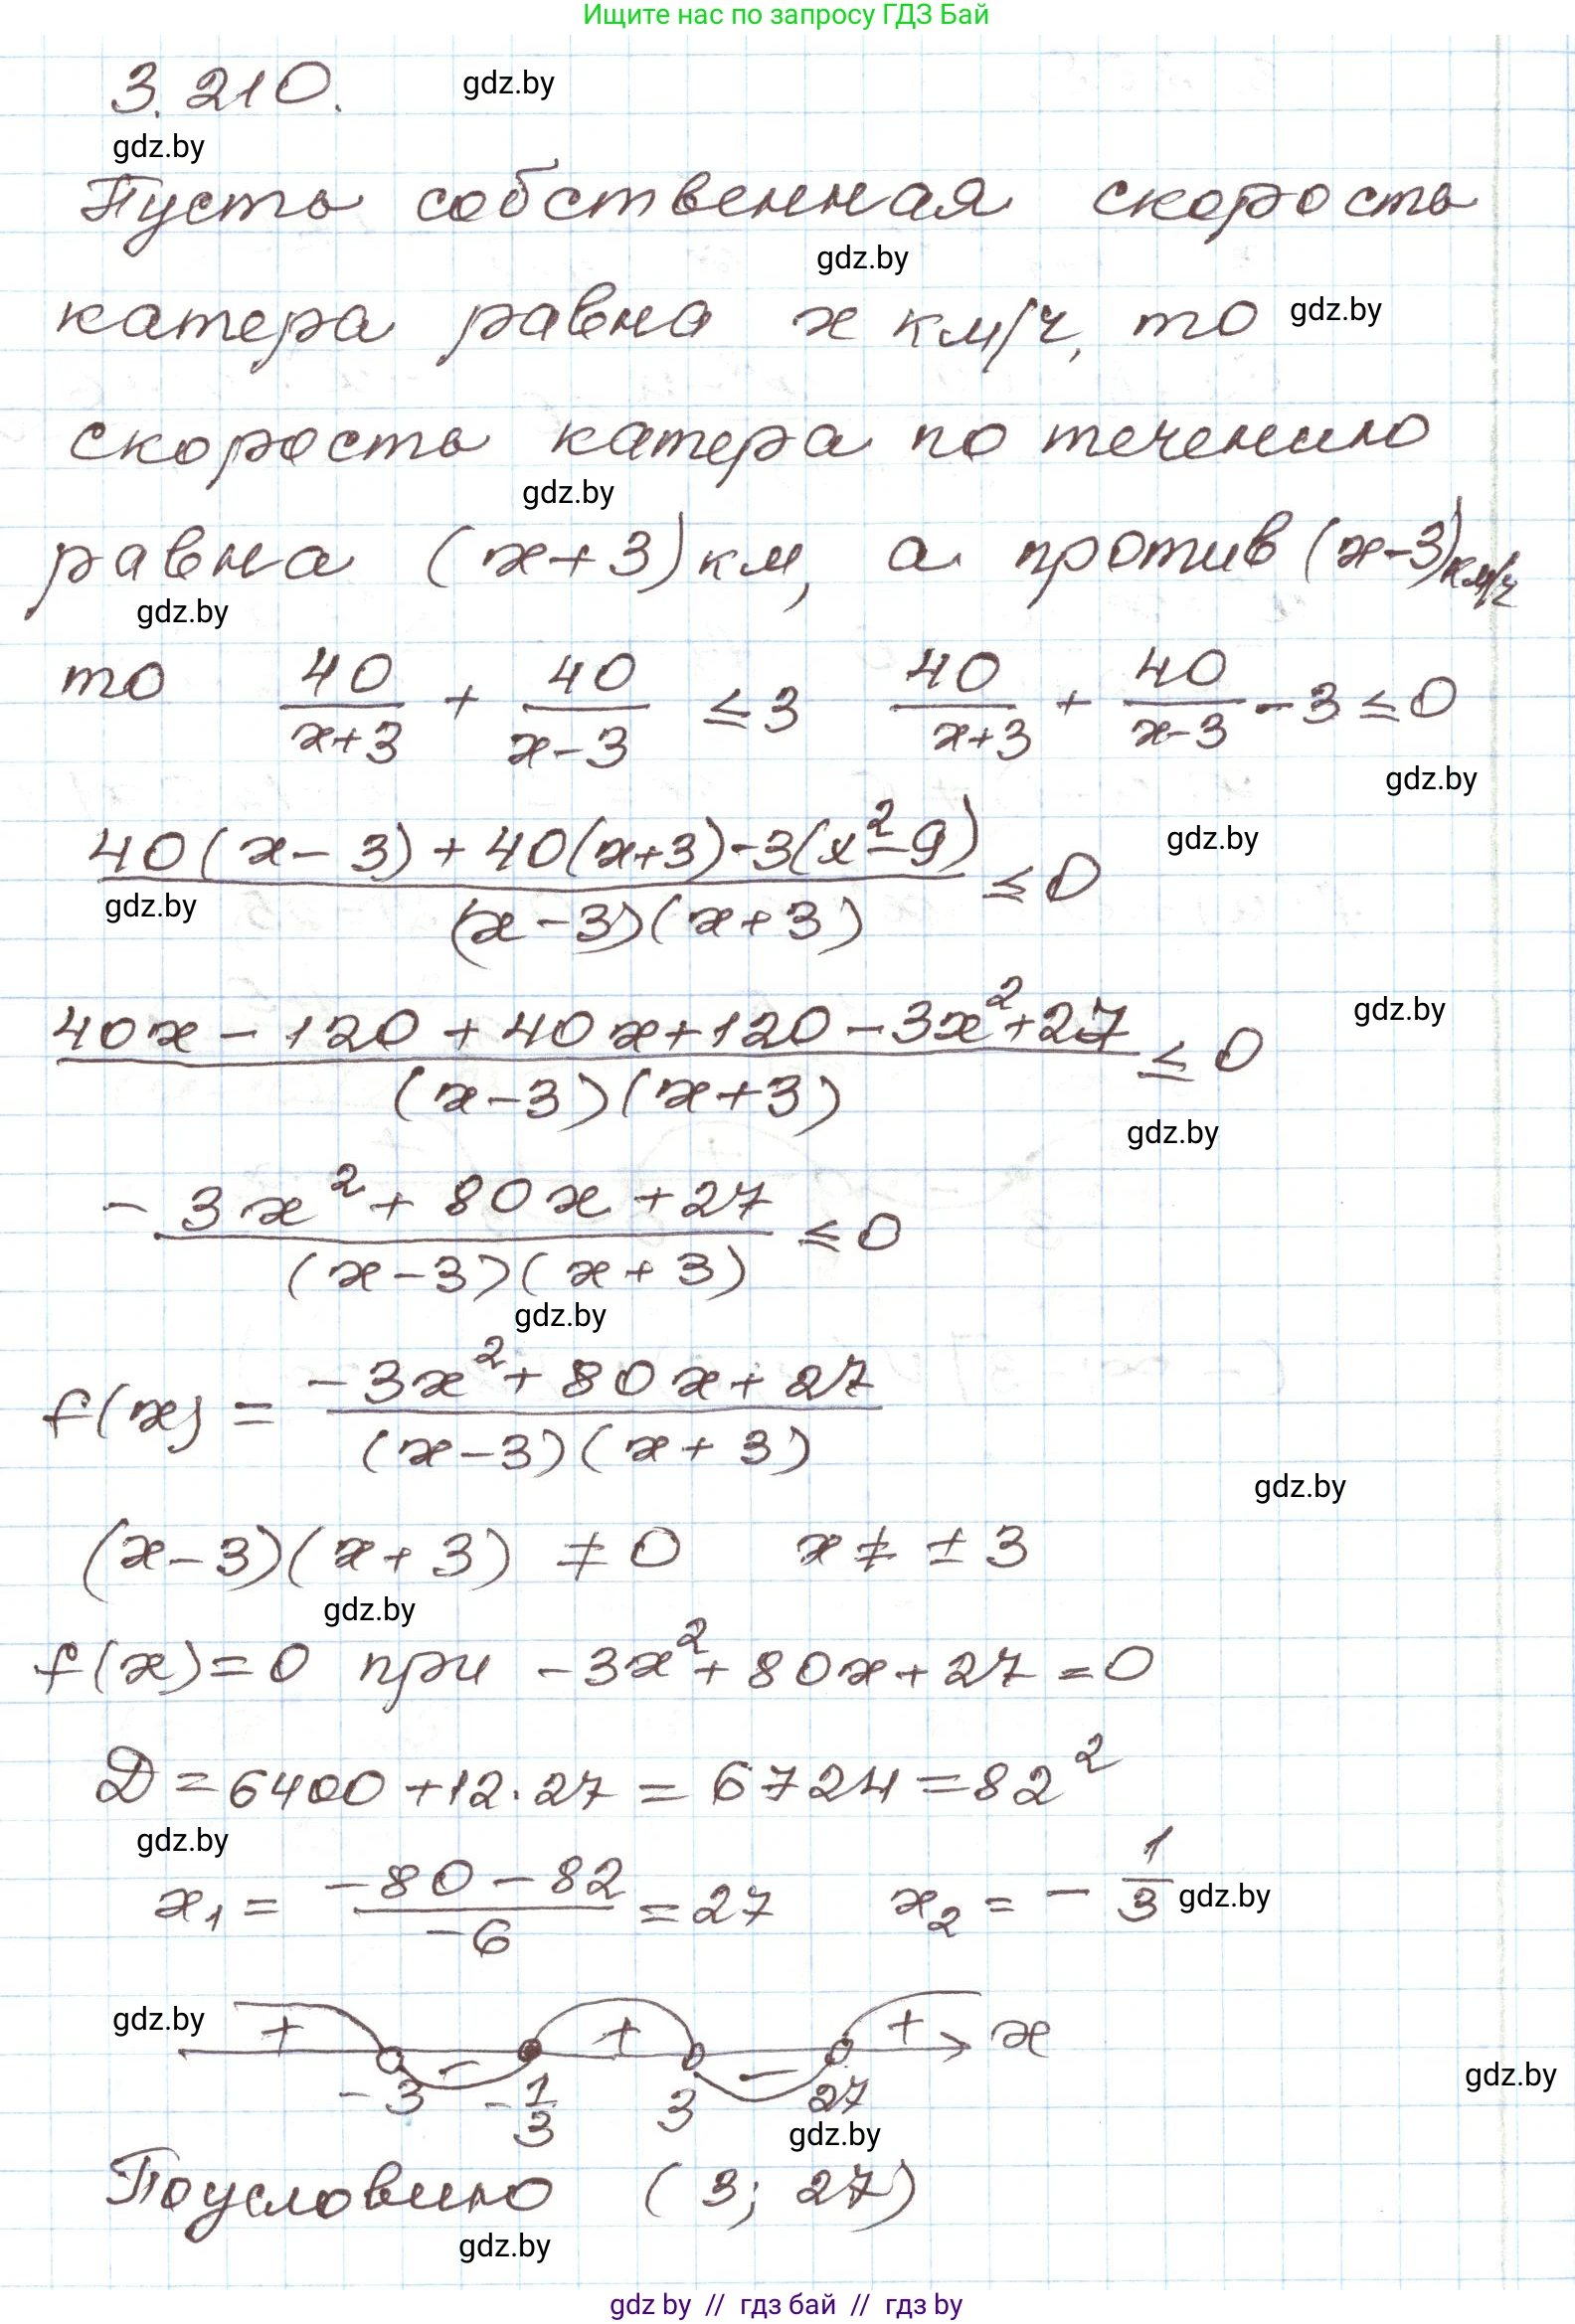 Ищите нас по запросу ГДЗ Бай
3.210.
gdz.by
gdz.by
Пусть собственная скорость
gdz.by
катера равна x км/ч, то
gdz.by
скорость катера по течению
gdz.by
равна (x+3) км, а против (x-3) км/ч
gdz.by
то 40/(x+3) + 40/(x-3) ≤ 3 40/(x+3) + 40/(x-3) - 3 ≤ 0
gdz.by
gdz.by
(40(x-3) + 40(x+3) - 3(x²-9))/((x-3)(x+3)) ≤ 0
gdz.by
gdz.by
(40x - 120 + 40x + 120 - 3x² + 27)/((x-3)(x+3)) ≤ 0
gdz.by
(-3x² + 80x + 27)/((x-3)(x+3)) ≤ 0
gdz.by
f(x) = (-3x² + 80x + 27)/((x-3)(x+3))
gdz.by
(x-3)(x+3) ≠ 0 x ≠ ±3
gdz.by
f(x) = 0 при -3x² + 80x + 27 = 0
D = 6400 + 12·27 = 6724 = 82²
gdz.by
x₁ = (-80-82)/-6 = 27 x₂ = -1/3
gdz.by
gdz.by
+ - + - + x
-3 -1/3 3 27
gdz.by
gdz.by
По условию (3; 27)
gdz.by
gdz by // гдз бай // гдз by